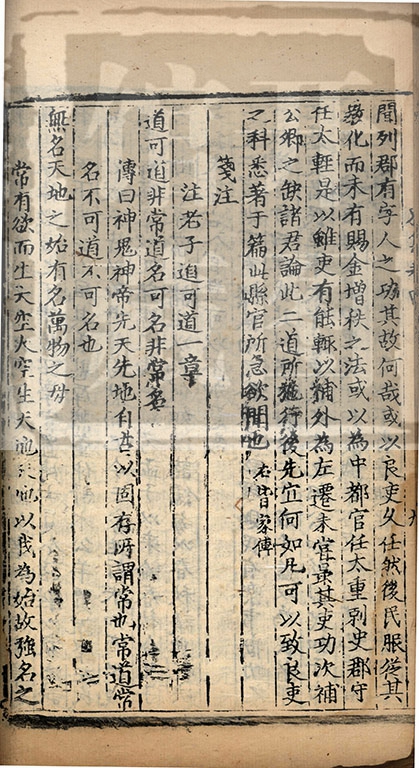 聞列郡有字人之功其故何哉或以良吏久任然後民服從其
教化而未有賜金增秩之法或以為中都官任太重別史郡守
任太輕是以雖吏有能輒以補外為左遷未嘗最其吏功次補
公卿之缺諸君論此二道所施行後先宜何如凡可以致良吏
之科悉著于篇此縣官所急欲聞也 右皆家傳
箋注
注老子道可道一章
道可道非常道名可名非常名
傳曰神鬼神帝先天先地自古以固存所謂常也常道常
名不可道不可名也
無名天地之始有名萬物之母
常有欲而生天空大空生天地天地以我為始故強名之